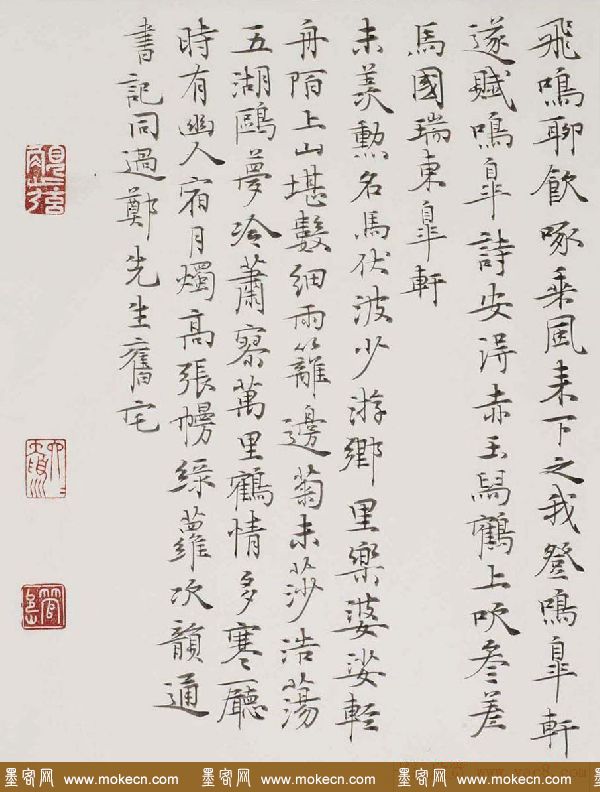 飛鳴聊飲啄乘風來下之我登鳴皐軒
遂賦鳴皐詩安得赤玉舄鶴上吹參差
馬國瑞東皐軒
未羨勲名馬伏波少游鄉里樂婆娑輕
舟陌上山堪數細雨籬邊菊未莎浩蕩
五湖鷗夢冷蕭寥萬里鶴情多寒廳
時有幽人宿月燭高張幔綠蘿次韻通
書記同過鄭先生舊宅
墨客网 www.mokecn.com 墨客网 www.mokecn.com 墨客网 www.mokecn.com